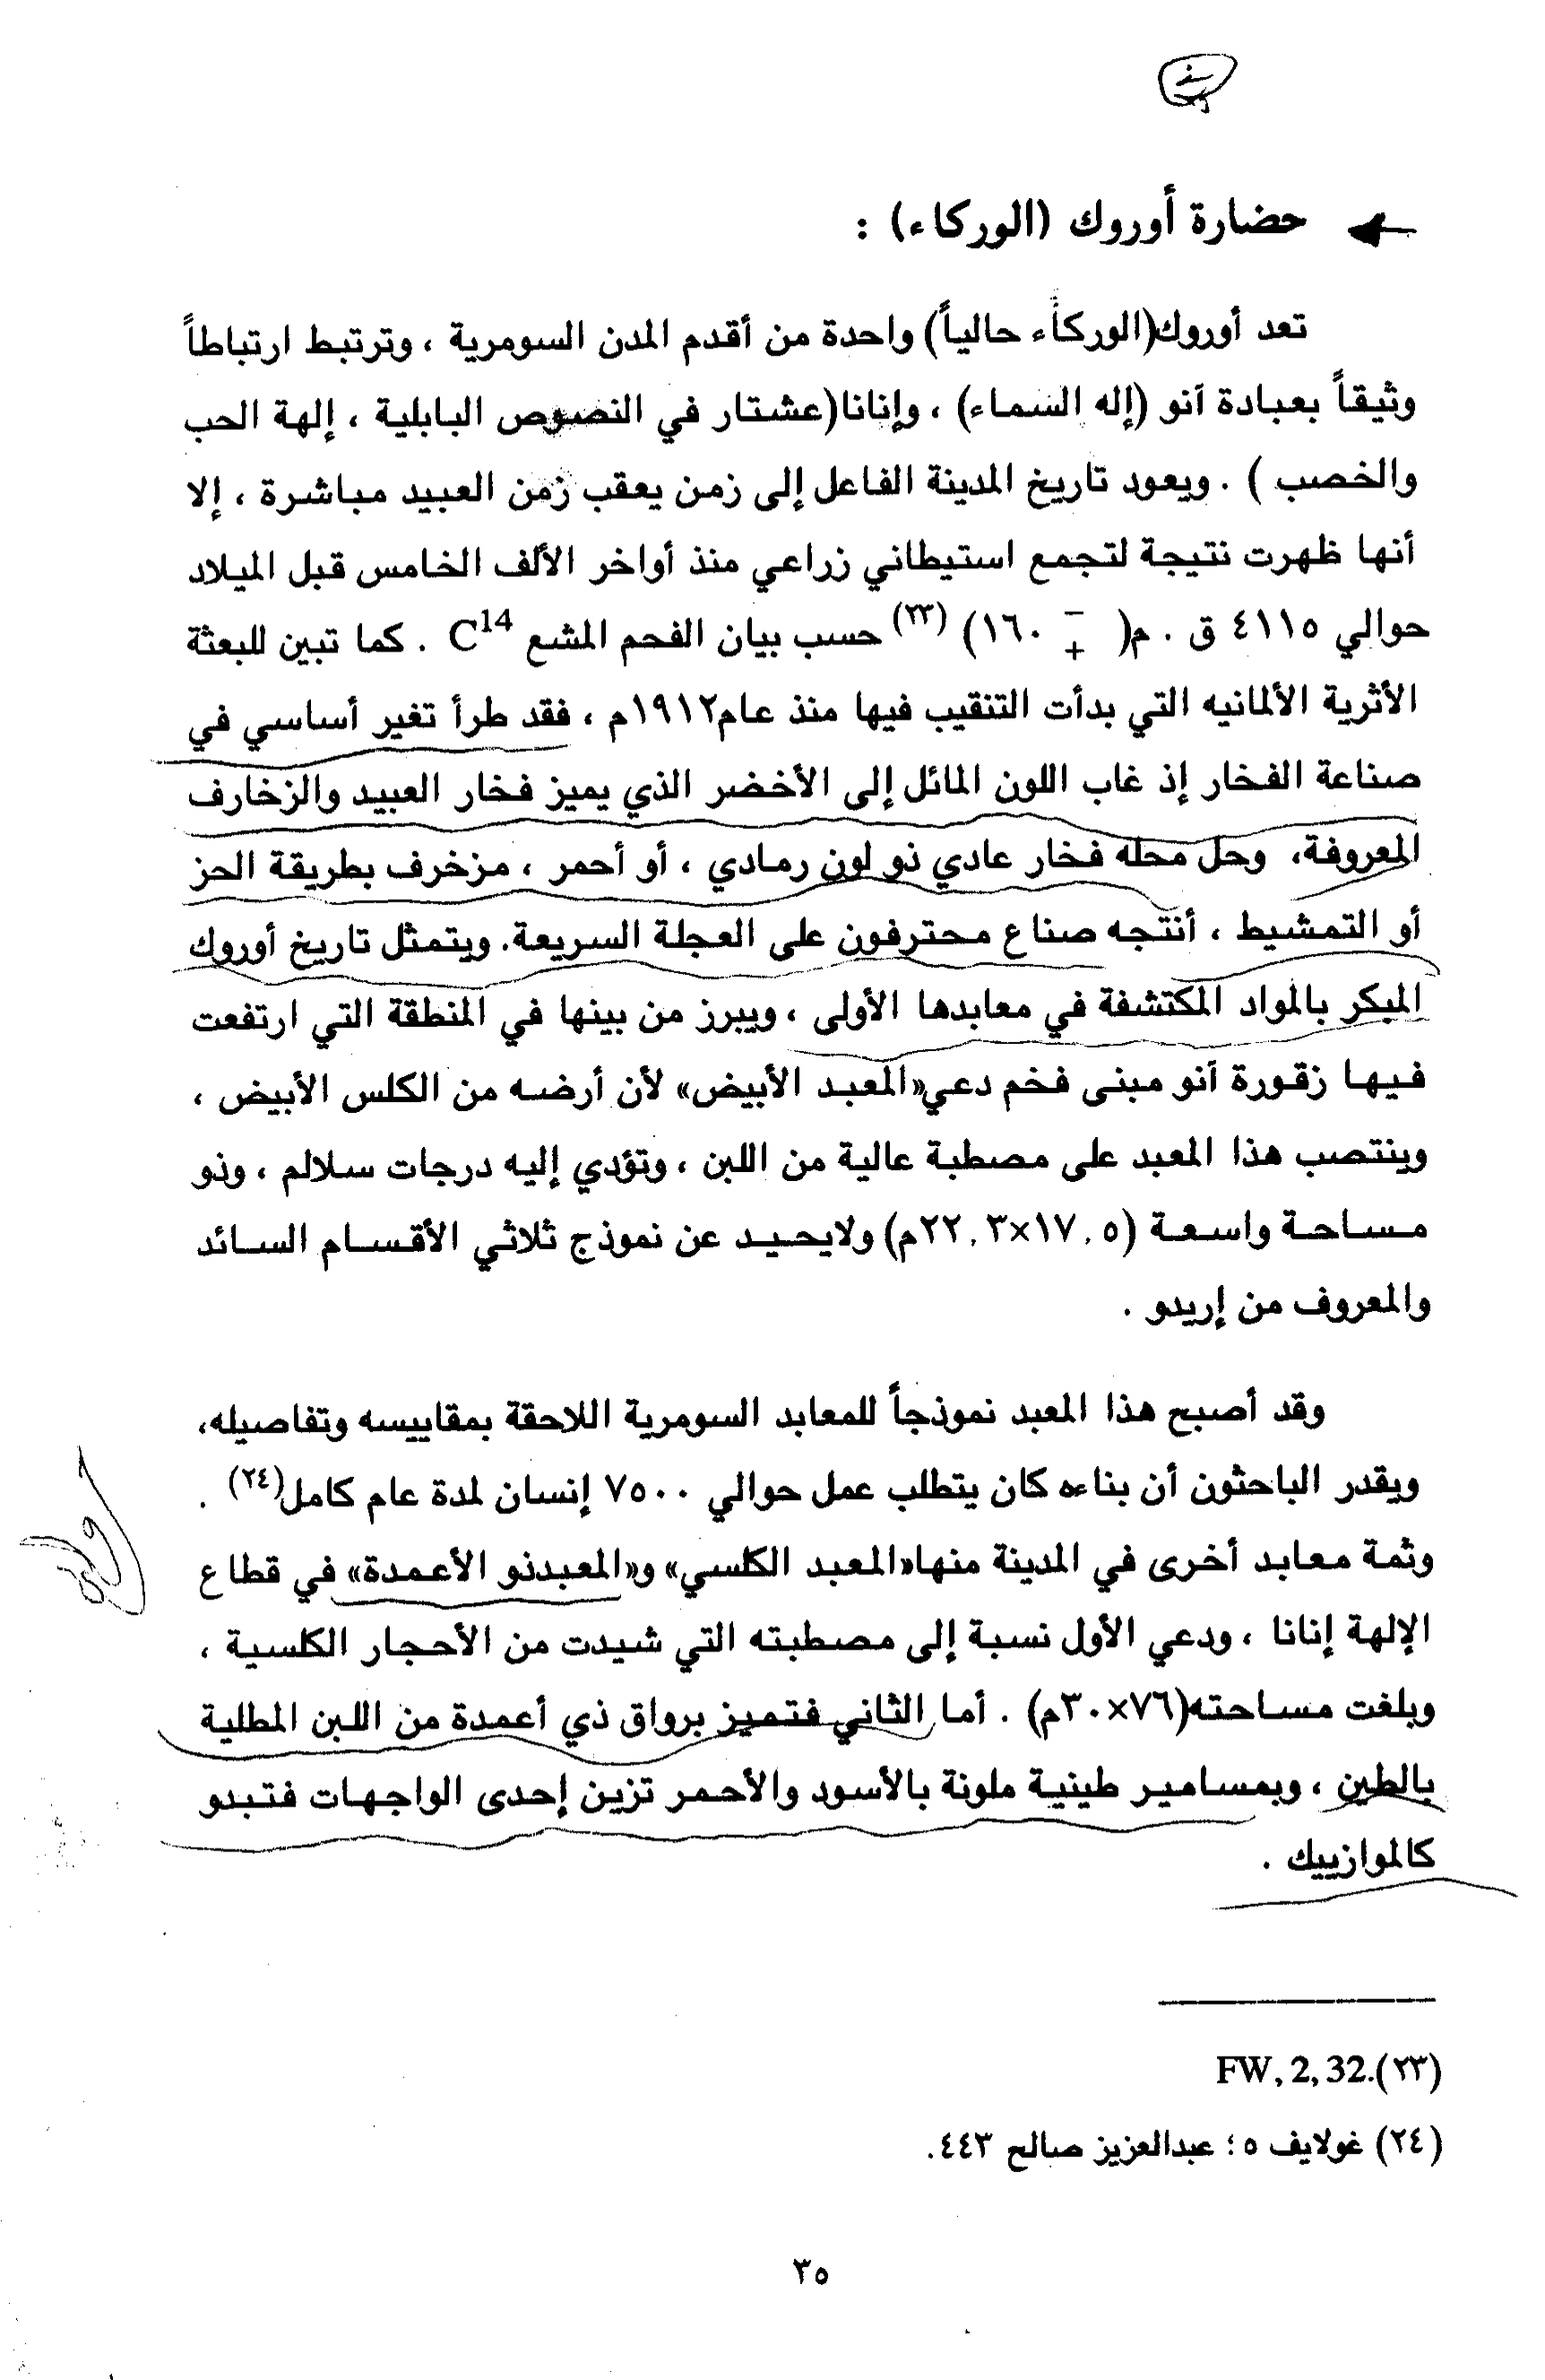 حضارة أوروك (الوركاء) :
تعد أوروك(الوركاء حالياً) واحدة من أقدم المدن السومرية ، وترتبط ارتباطاً
وثيقاً بعبادة آنو (إله السماء) ، وإنانا(عشتار في النصوص البابلية ، إلهة الحب
والخصب ) . ويعود تاريخ المدينة الفاعل إلى زمن يعقب زمن العبيد مباشرة ، إلا
أنها ظهرت نتيجة لتجمع استيطاني زراعي منذ أواخر الألف الخامس قبل الميلاد
حوالي ٤١١٥ ق . م( ∓ ١٦٠) (٢٣) حسب بيان الفحم المشع C14 . كما تبين للبعثة
الأثرية الألمانيه التي بدأت التنقيب فيها منذ عام١٩١٢م ، فقد طرأ تغير أساسي في
صناعة الفخار إذ غاب اللون المائل إلى الأخضر الذي يميز فخار العبيد والزخارف
المعروفة، وحل محله فخار عادي ذو لون رمادي ، أو أحمر ، مزخرف بطريقة الحز
أو التمشيط ، أنتجه صناع محترفون على العجلة السريعة. ويتمثل تاريخ أوروك
المبكر بالمواد المكتشفة في معابدها الأولى ، ويبرز من بينها في المنطقة التي ارتفعت
فيها زقورة آنو مبنى فخم دعي«المعبد الأبيض» لأن أرضه من الكلس الأبيض ،
وينتصب هذا المعبد على مصطبة عالية من اللبن ، وتؤدي إليه درجات سلالم ، وذو
مساحة واسعة (١٧,٥×٢٢,٣م) ولايحيد عن نموذج ثلاثي الأقسام السائد
والمعروف من إريدو .
وقد أصبح هذا المعبد نموذجاً للمعابد السومرية اللاحقة بمقاييسه وتفاصيله،
ويقدر الباحثون أن بناءه كان يتطلب عمل حوالي ٧٥٠٠ إنسان لمدة عام كامل(٢٤) .
وثمة معابد أخرى في المدينة منها«المعبد الكلسي» و«المعبدذو الأعمدة» في قطاع
الإلهة إنانا ، ودعي الأول نسبة إلى مصطبته التي شيدت من الأحجار الكلسية ،
وبلغت مساحته(٧٦×٣٠م) . أما الثاني فتميز برواق ذي أعمدة من اللبن المطلية
بالطين ، وبمسامير طينية ملونة بالأسود والأحمر تزين إحدى الواجهات فتبدو
كالموازييك .
(٢٣).FW, 2, 32
(٢٤) غولايف ٥ ؛ عبدالعزيز صالح ٤٤٣.
٣٥